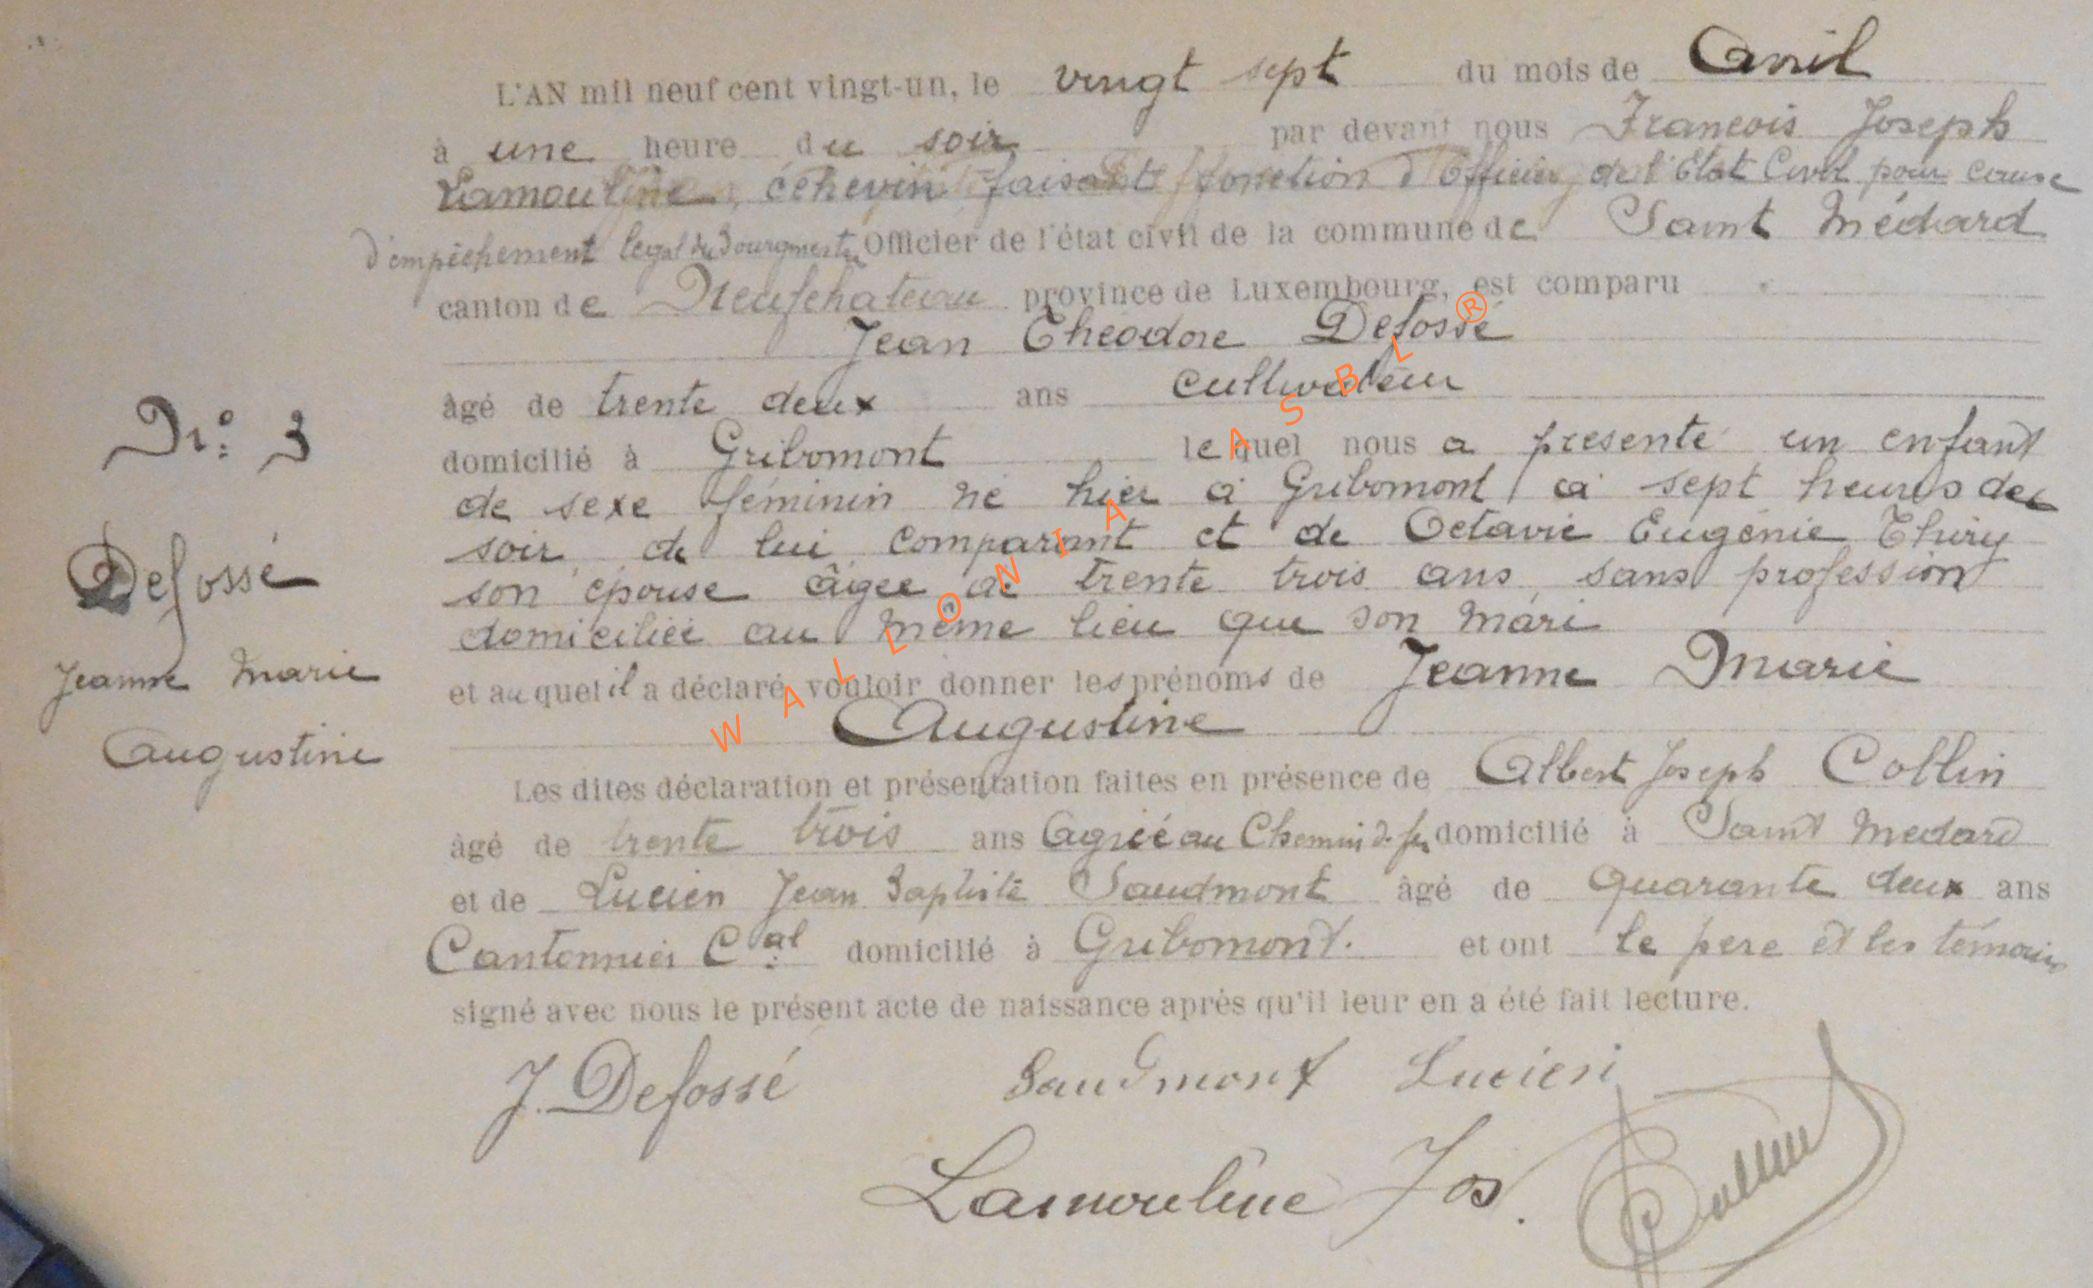 L'AN mil neuf cent vingt-un, le vingt sept du mois de Avril
à une heure du soir par devant nous Francois Joseph
Lamouline, échevin faisant fonction d'Officier de l'Etat Civil pour cause
d'empêchement legal du Bourgmestre Officier de l'état civil de la commune de Saint Médard
canton de Neufchateau province de Luxembourg, est comparu
Jean Théodore Defossé
âgé de trente deux ans cultivateur
N.° 3
domicilié à Gribomont lequel nous a présenté un enfant
de sexe féminin né hier à Gribomont à sept heures du
soir de lui comparant et de Octavie Eugénie Thiry
Defossé
son épouse âgée de trente trois ans, sans profession
domiciliée au même lieu que son mari
Jeanne Marie
et auquel il a déclaré vouloir donner les prénoms de Jeanne Marie
Augustine
Augustine
Les dites déclaration et présentation faites en présence de Albert Joseph Collin
âgé de trente trois ans Agréé au Chemin de fer domicilié à Saint Medard
et de Lucien Jean Baptiste Saudmont âgé de quarante deux ans
Cantonnier Cal domicilié à Gribomont. et ont le père et les témoins
signé avec nous le présent acte de naissance après qu'il leur en a été fait lecture.
J. Defossé Saudmont Lucien
Lamouline Jos. Collin
WALLONIA ASBL ®